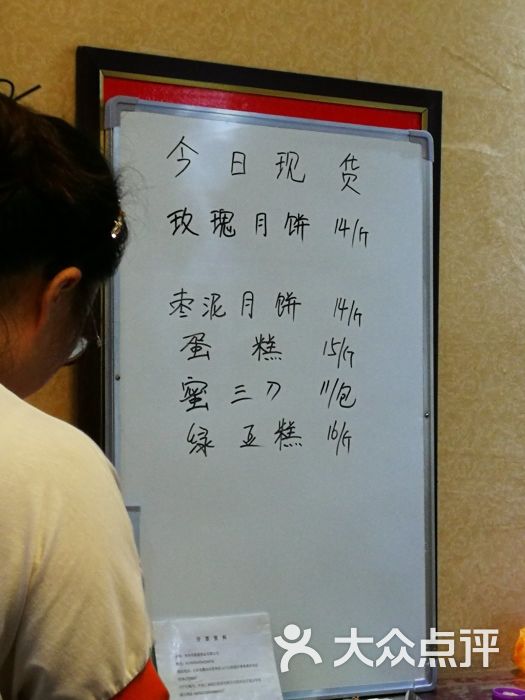 今日现货
玫瑰月饼 14/斤
枣泥月饼 14/斤
蛋糕 15/斤
蜜三刀 11/包
绿豆糕 16/斤
大众点评